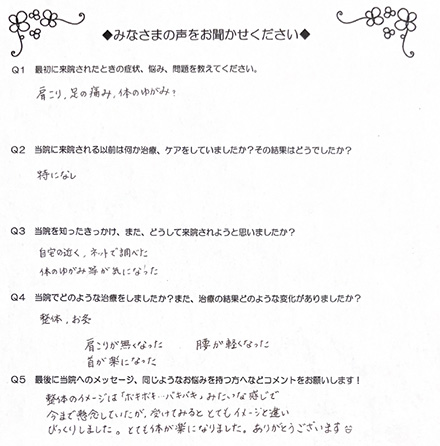 ◆みなさまの声をお聞かせください◆
Q1 最初に来院されたときの症状、悩み、問題を教えてください。
肩こり,足の痛み,体のゆがみ?
Q2 当院に来院される以前は何か治療、ケアをしていましたか?その結果はどうでしたか?
特になし
Q3 当院を知ったきっかけ、また、どうして来院されようと思いましたか?
自宅の近く,ネットで調べた
体のゆがみ等が気になった
Q4 当院でどのような治療をしましたか?また、治療の結果どのような変化がありましたか?
整体,お灸
肩こりが無くなった 腰が軽くなった
首が楽になった
Q5 最後に当院へのメッセージ、同じようなお悩みを持つ方へなどコメントをお願いします!
整体のイメージは「ボキボキ…バキバキ」みたいな感じで
今まで懸念していたが,受けてみるととてもイメージと違い
びっくりしました。とても体が楽になりました。ありがとうございます